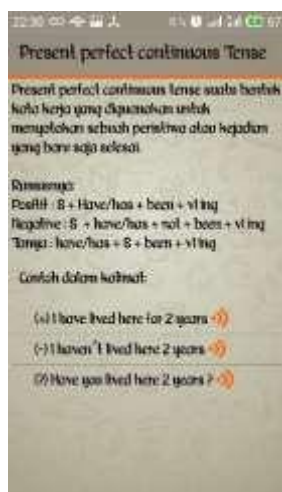 22:30
67
Present perfect continuous Tense
Present perfect continuous tense suatu bentuk
kata kerja yang digunakan untuk
menyatakan sebuah peristiwa atau kejadian
yang baru saja selesai.
Rumusnya:
Positif : S + Have/has + been + v1 ing
Negative : S + have/has + not + been + v1 ing
Tanya : have/has + S + been + v1 ing
Contoh dalam kalimat:
(+) I have lived here for 2 years
(-) I haven't lived here 2 years
(?) Have you lived here 2 years ?